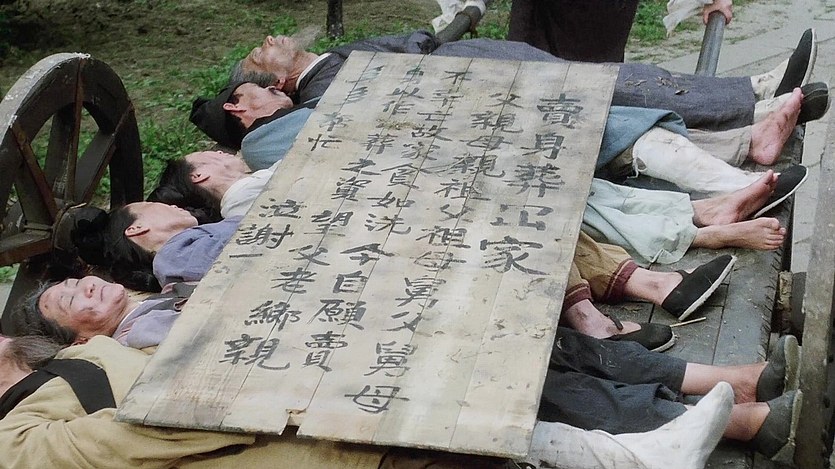 賣身葬家
父親母親祖父祖母舅父舅母
不幸亡故家貧如洗今自願賣
身以作葬之資望父老鄉親
多多幫忙泣謝